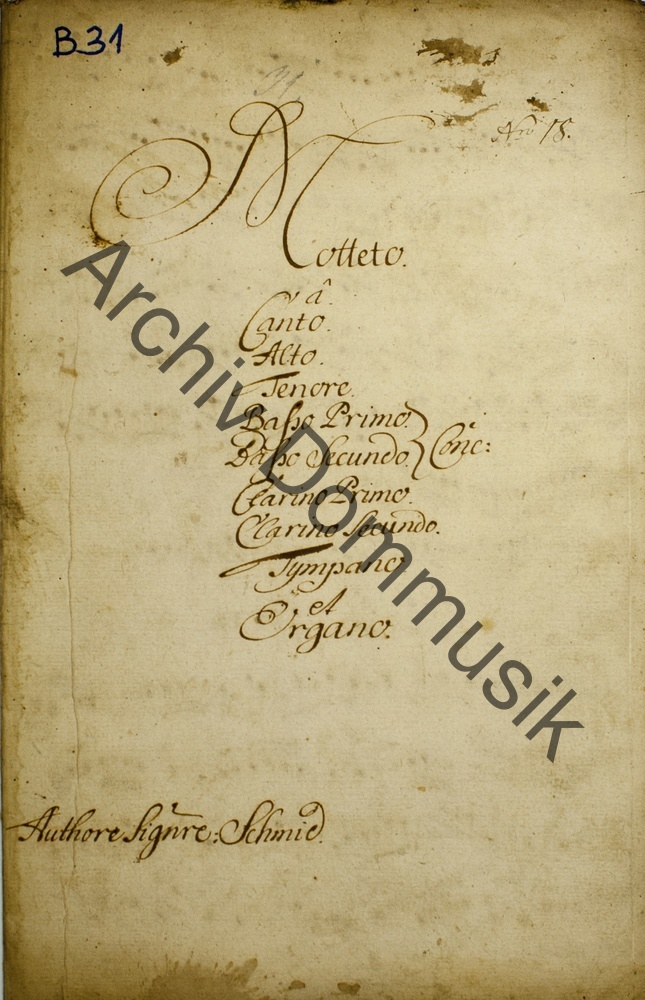 B31
39
Nro 18.
Motteto.
â
Canto.
Alto.
Tenore.
Baſso Primo.
Baſso Secundo. } Conc:
Clarino Primo.
Clarino Secundo.
Tympano
et
Organo.
Authore Signre: Schmid.
Archiv Dommusik